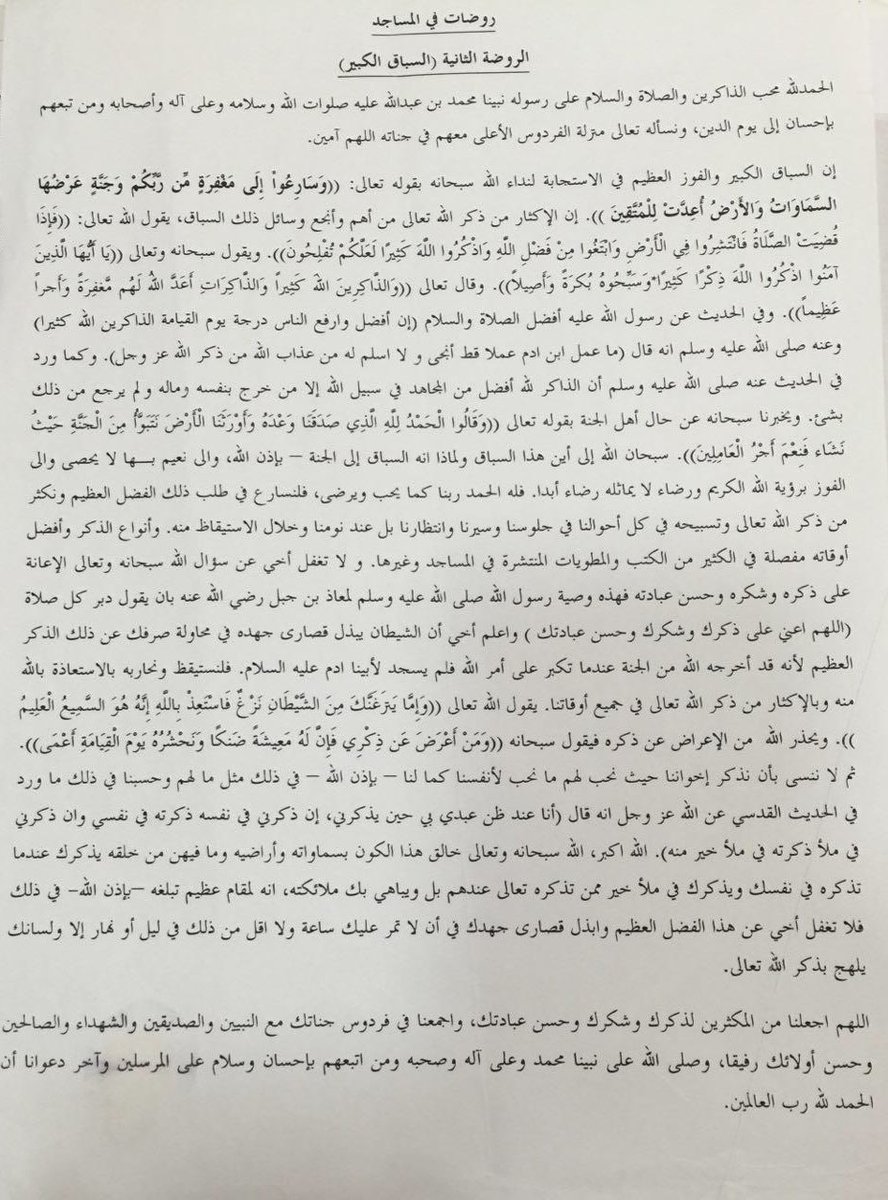 روضات في المساجد
الروضة الثانية (السباق الكبير)
الحمدلله محب الذاكرين والصلاة والسلام على رسوله نبينا محمد بن عبدالله عليه صلوات الله وسلامه وعلى آله وأصحابه ومن تبعهم
بإحسان إلى يوم الدين، ونسأله تعالى منزلة الفردوس الأعلى معهم في جناته اللهم آمين.
إن السباق الكبير والفوز العظيم في الاستجابة لنداء الله سبحانه بقوله تعالى: ((وَسَارِعُواْ إِلَى مَغْفِرَةٍ مِّن رَّبِّكُمْ وَجَنَّةٍ عَرْضُهَا
السَّمَاوَاتُ وَالأَرْضُ أُعِدَّتْ لِلْمُتَّقِينَ )). إن الإكثار من ذكر الله تعالى من أهم وأنجع وسائل ذلك السباق، يقول الله تعالى: ((فَإِذَا
قُضِيَتِ الصَّلَاةُ فَانْتَشِرُوا فِي الْأَرْضِ وَابْتَغُوا مِنْ فَضْلِ اللَّهِ وَاذْكُرُوا اللَّهَ كَثِيرًا لَعَلَّكُمْ تُفْلِحُونَ)). ويقول سبحانه وتعالى ((يَا أَيُّهَا الَّذِينَ
آمَنُوا اذْكُرُوا اللَّهَ ذِكْرًا كَثِيرًا*وَسَبِّحُوهُ بُكْرَةً وَأَصِيلاً)). وقال تعالى ((وَالذَّاكِرِينَ اللَّهَ كَثِيراً وَالذَّاكِرَاتِ أَعَدَّ اللَّهُ لَهُم مَّغْفِرَةً وَأَجراً
عَظِيماً)). وفي الحديث عن رسول الله عليه أفضل الصلاة والسلام (إن أفضل وارفع الناس درجة يوم القيامة الذاكرين الله كثيرا)
وعنه صلى الله عليه وسلم انه قال (ما عمل ابن ادم عملا قط أنجى و لا اسلم له من عذاب الله من ذكر الله عز وجل). وكما ورد
في الحديث عنه صلى الله عليه وسلم أن الذاكر لله أفضل من المجاهد في سبيل الله إلا من خرج بنفسه وماله ولم يرجع من ذلك
بشئ. ويخبرنا سبحانه عن حال أهل الجنة بقوله تعالى ((وَقَالُوا الْحَمْدُ لِلَّهِ الَّذِي صَدَقَنَا وَعْدَهُ وَأَوْرَثَنَا الْأَرْضَ نَتَبَوَّأُ مِنَ الْجَنَّةِ حَيْثُ
نَشَاء فَنِعْمَ أَجْرُ الْعَامِلِينَ)). سبحان الله إلى أين هذا السباق ولماذا انه السباق إلى الجنة – بإذن الله، والى نعيم بـها لا يحصى والى
الفوز برؤية الله الكريم ورضاء لا يماثله رضاء أبدا. فله الحمد ربنا كما يحب ويرضى، فلنسارع في طلب ذلك الفضل العظيم ونكثر
من ذكر الله تعالى وتسبيحه في كل أحوالنا في جلوسنا وسيرنا وانتظارنا بل عند نومنا وخلال الاستيقاظ منه. وأنواع الذكر وأفضل
أوقاته مفصلة في الكثير من الكتب والمطويات المنتشرة في المساجد وغيرها. و لا تغفل أخي عن سؤال الله سبحانه وتعالى الإعانة
على ذكره وشكره وحسن عبادته فهذه وصية رسول الله صلى الله عليه وسلم لمعاذ بن جبل رضي الله عنه بان يقول دبر كل صلاة
(اللهم اعني على ذكرك وشكرك وحسن عبادتك ) واعلم أخي أن الشيطان يبذل قصارى جهده في محاولة صرفك عن ذلك الذكر
العظيم لأنه قد أخرجه الله من الجنة عندما تكبر على أمر الله فلم يسجد لأبينا ادم عليه السلام. فلنستيقظ ونحاربه بالاستعاذة بالله
منه وبالإكثار من ذكر الله تعالى في جميع أوقاتنا. يقول الله تعالى ((وَإِمَّا يَنزَغَنَّكَ مِنَ الشَّيْطَانِ نَزْغٌ فَاسْتَعِذْ بِاللَّهِ إِنَّهُ هُوَ السَّمِيعُ الْعَلِيمُ
)). ويحذر الله من الإعراض عن ذكره فيقول سبحانه ((وَمَنْ أَعْرَضَ عَن ذِكْرِي فَإِنَّ لَهُ مَعِيشَةً ضَنكًا وَنَحْشُرُهُ يَوْمَ الْقِيَامَةِ أَعْمَى)).
ثم لا ننسى بأن نذكر إخواننا حيث نحب لهم ما نحب لأنفسنا كما لنا – بإذن الله – في ذلك مثل ما لهم وحسبنا في ذلك ما ورد
في الحديث القدسي عن الله عز وجل انه قال (أنا عند ظن عبدي بي حين يذكرني، إن ذكرني في نفسه ذكرته في نفسي وان ذكرني
في ملأ ذكرته في ملأ خير منه). الله اكبر، الله سبحانه وتعالى خالق هذا الكون بسماواته وأراضيه وما فيهن من خلقه يذكرك عندما
تذكره في نفسك ويذكرك في ملأ خير ممن تذكره تعالى عندهم بل ويباهي بك ملائكته، انه لمقام عظيم تبلغه –بإذن الله– في ذلك
فلا تغفل أخي عن هذا الفضل العظيم وابذل قصارى جهدك في أن لا تمر عليك ساعة ولا اقل من ذلك في ليل أو نهار إلا ولسانك
يلهج بذكر الله تعالى.
اللهم اجعلنا من المكثرين لذكرك وشكرك وحسن عبادتك، واجمعنا في فردوس جناتك مع النبيين والصديقين والشهداء والصالحين
وحسن أولائك رفيقا، وصلى الله على نبينا محمد وعلى آله وصحبه ومن اتبعهم بإحسان وسلام على المرسلين وآخر دعوانا أن
الحمد لله رب العالمين.